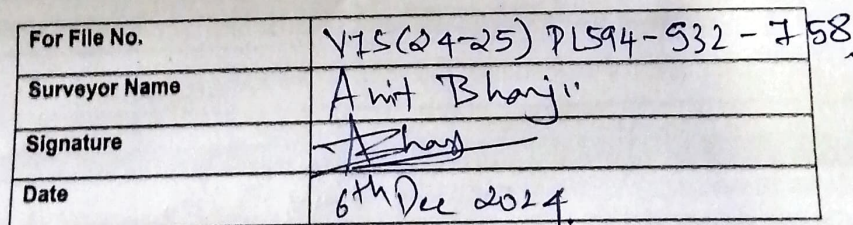 For File No. VIS(24-25) PL594-532-758
Surveyor Name Amit Bhanji
Signature
Date 6th Dec 2024.